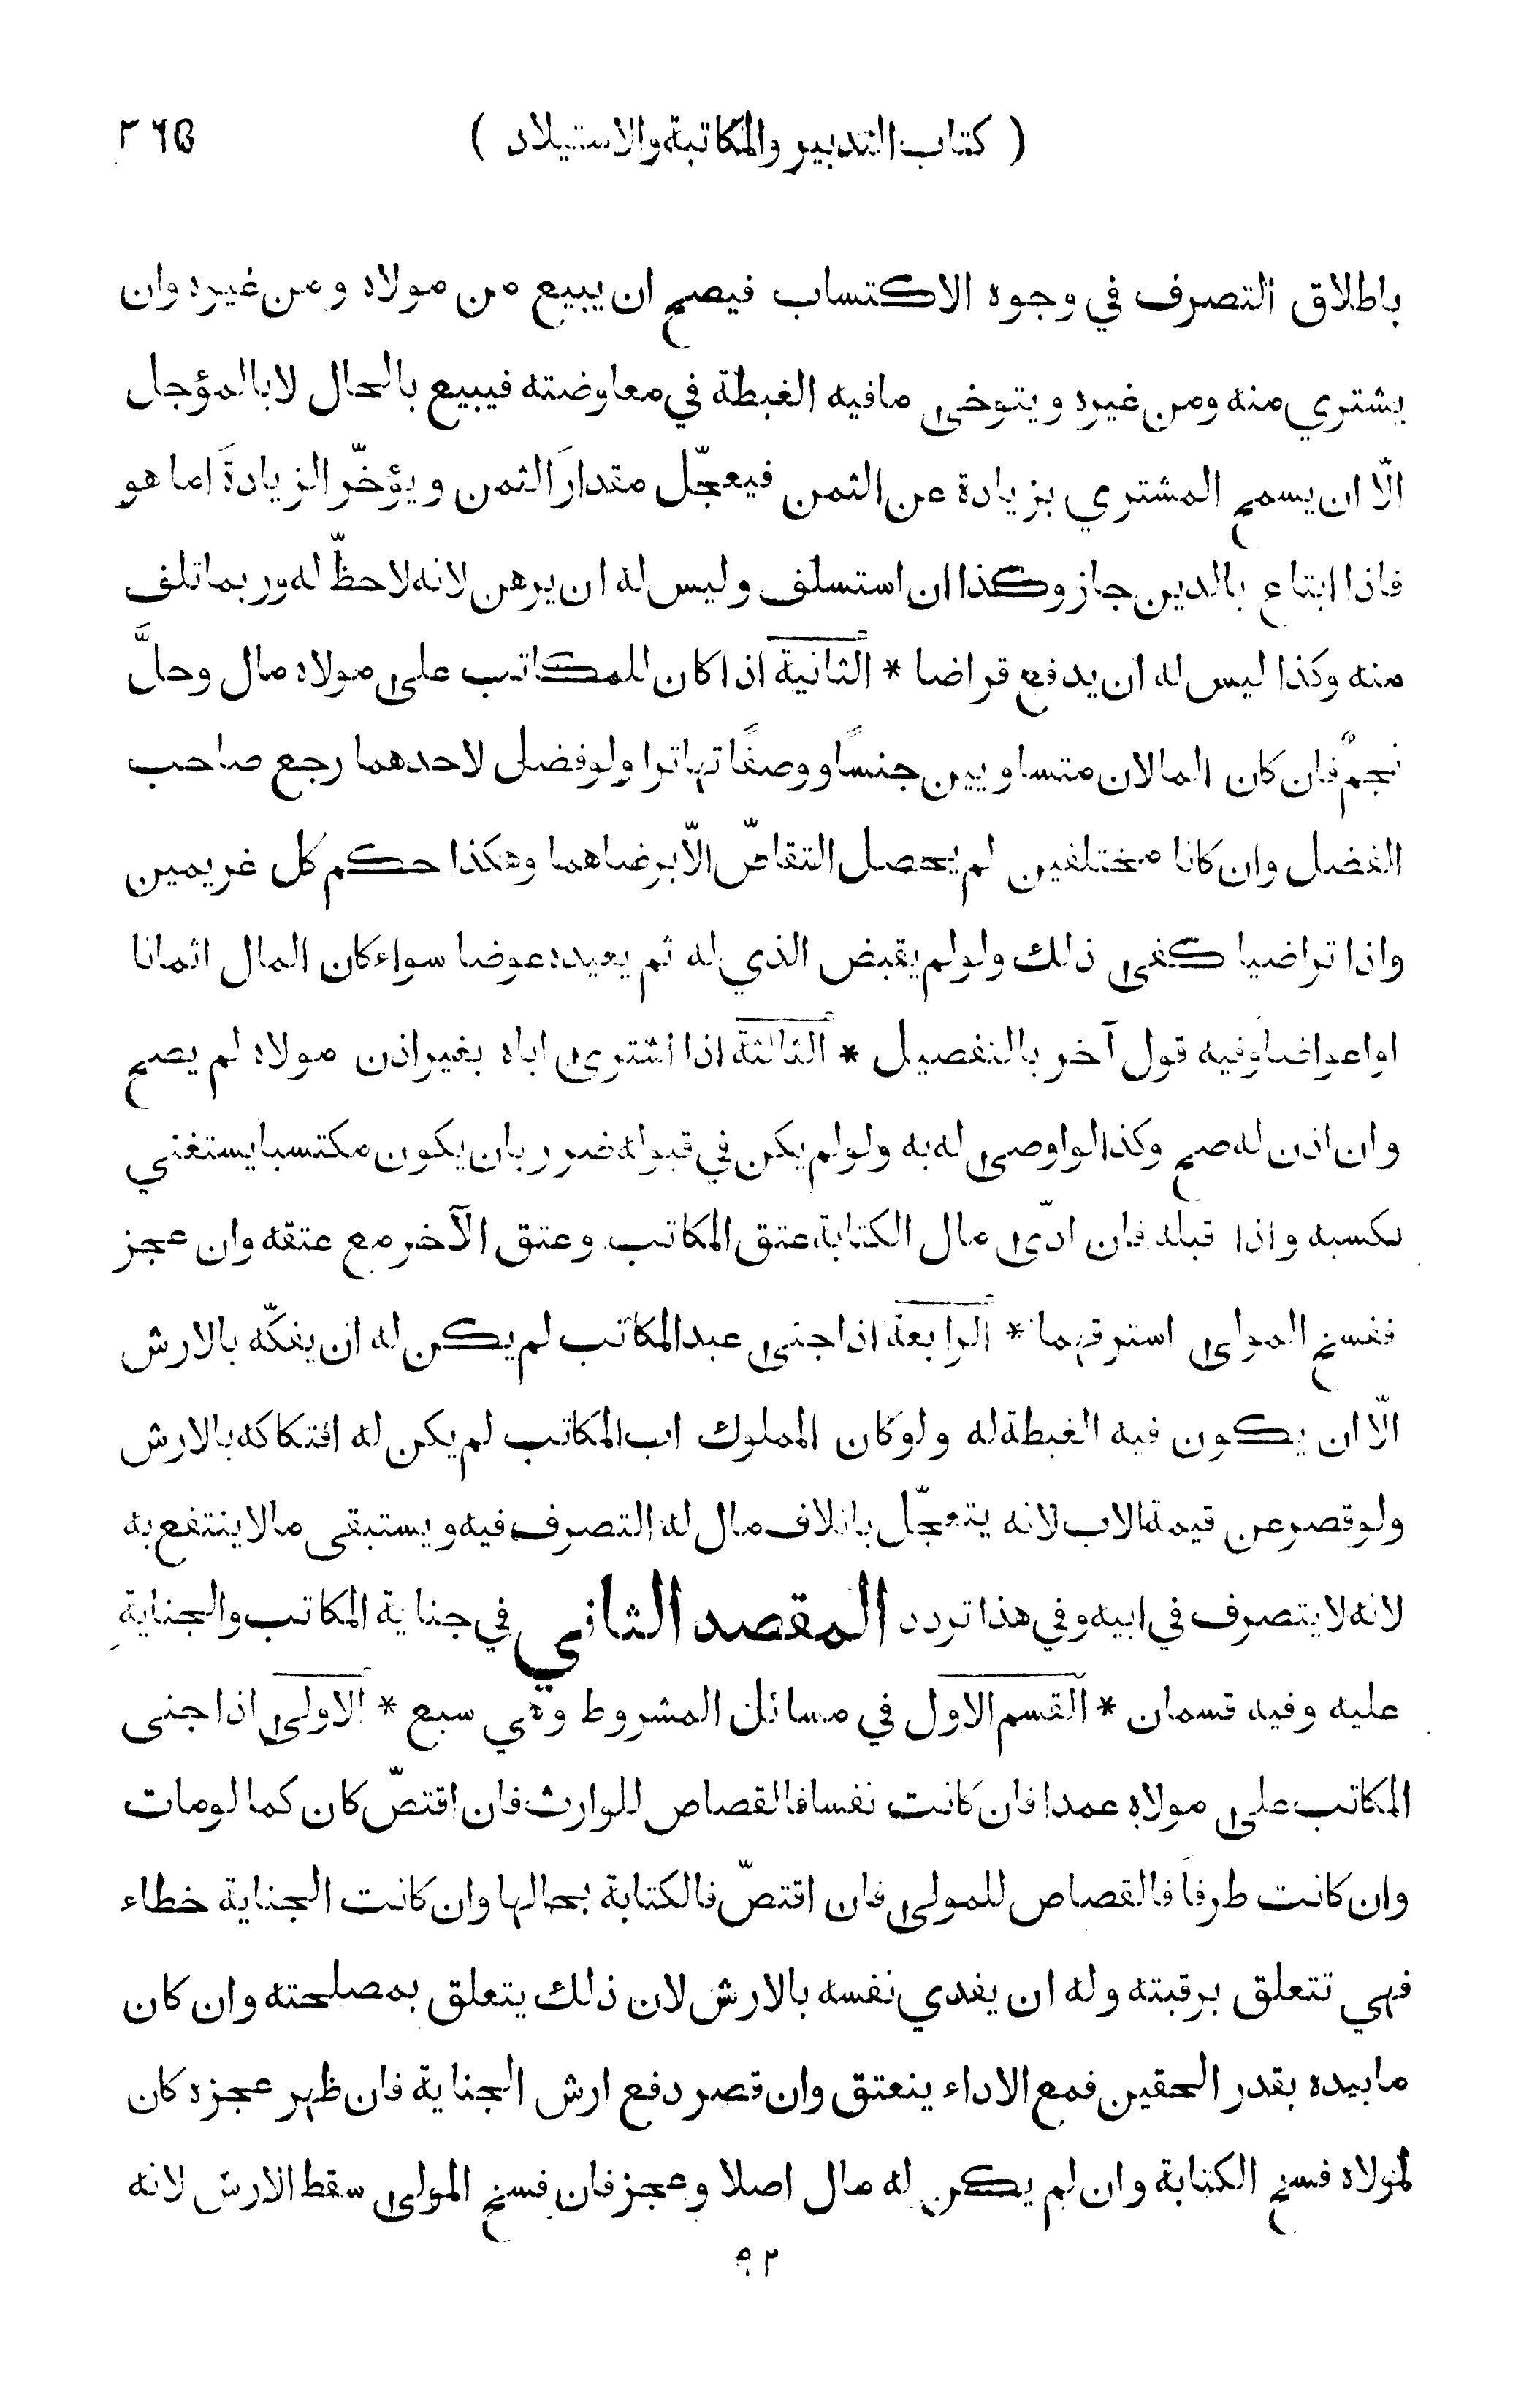 ( كتاب التدبير والمكاتبة والاستيلاد ) ٣٦٥
باطلاق التصرف في وجوه الاكتساب فيصح ان يبيع من مولاه ومن غيره وان
يشتري منه ومن غيره ويتوخى مافيه الغبطة في معاوضته فيبيع بالحال لابالمؤجل
الّا ان يسمح المشتري بزيادة عن الثمن فيعجّل مقدارَ الثمن ويؤخّر الزيادةَ اما هو
فاذا ابتاع بالدين جاز وكذا ان استسلف وليس له ان يرهن لانه لاحظّ له وربما تلف
منه وكذا ليس له ان يدفع قراضا * الثانية اذا كان للمكاتب على مولاه مال وحلَّ
نجمٌ فان كان المالان متساويين جنسًا ووصفًا تهاترا ولو فضل لاحدهما رجع صاحب
الفضل وان كانا مختلفين لم يحصل التقاصّ الّا برضاهما وهكذا حكم كل غريمين
واذا تراضيا كفى ذلك ولو لم يقبض الذي له ثم يعيده عوضا سواء كان المال اثمانا
او اعواضا وفيه قول آخر بالتفصيل * الثالثة اذا اشترى اباه بغير اذن مولاه لم يصح
وان اذن له صح وكذا لو اوصى له به ولو لم يكن في قبوله ضرر بان يكون مكتسبا يستغني
بكسبه واذا قبله فان ادّى مال الكتابة عتق المكاتب وعتق الآخر مع عتقه وان عجز
ففسخ المولى استرقهما * الرابعة اذا جنى عبد المكاتب لم يكن له ان يفكّه بالارش
الّا ان يكون فيه الغبطة له ولو كان المملوك اب المكاتب لم يكن له افتكاكه بالارش
ولو قصر عن قيمة الاب لانه يتعجّل باتلاف مال له التصرف فيه ويستبقى مالا ينتفع به
لانه لا يتصرف في ابيه وفي هذا تردد المقصد الثاني في جناية المكاتب والجناية
عليه وفيه قسمان * القسم الاول في مسائل المشروط وهي سبع * الاولى اذا جنى
المكاتب على مولاه عمدا فان كانت نفسا فالقصاص للوارث فان اقتصّ كان كما لو مات
وان كانت طرفًا فالقصاص للمولى فان اقتصّ فالكتابة بحالها وان كانت الجناية خطاء
فهي تتعلق برقبته وله ان يفدي نفسه بالارش لان ذلك يتعلق بمصلحته وان كان
ما بيده بقدر الحقين فمع الاداء ينعتق وان قصر دفع ارش الجناية فان ظهر عجزه كان
لمولاه فسخ الكتابة وان لم يكن له مال اصلا وعجز فان فسخ المولى سقط الارش لانه
٩٢